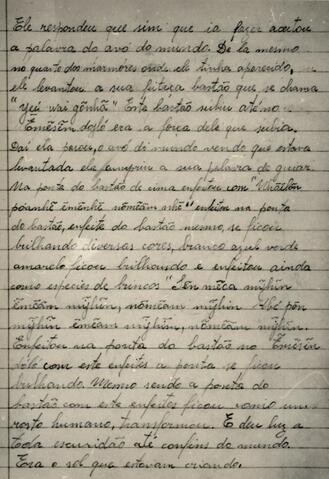 Ele respondeu que sim que ia fazer aceitou
a palavra do avô do mundo. De lá mesmo
no quarto dos marmores onde ele tinha aparecido,
ele levantou a sua futeza bastão que se chama
"Yeũ wai gõñhẽ" Este bastão subiu até no
Ẽmẽsẽn dofló era a força dele que subia.
Daí ela parou, o avô do mundo vendo que estava
levantada ele cumpriu a sua palavra de guiar.
Na ponta do bastão de cima enfeitou com
põanhẽ ẽmẽnhẽ nõmẽãm nhẽ" enfeitou na ponta
do bastão, enfeite do bastão mesmo, se ficou
brilhando diversas cores, branco azul verde
amarelo ficou brilhando e enfeitou ainda
como especies de brincos mĩhũn
ẽmẽãm mĩhũn, nõmẽãm mĩhũn põn
mĩhũn ẽmẽãm mĩhũn, nõmẽãm mĩhũn.
Enfeitou na ponta do bastão no Ẽmẽsẽn
dofló com este enfeites a ponta se ficou
brilhando. Mesmo sendo a ponta do
bastão com este enfeites ficou como um
rosto humano, transformou. E deu luz a
toda escuridão até confins do mundo.
Era o sol que estavam criando.